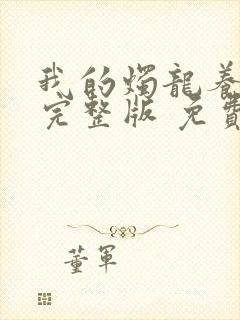 我的燭龍養
完整版 免費
董軍